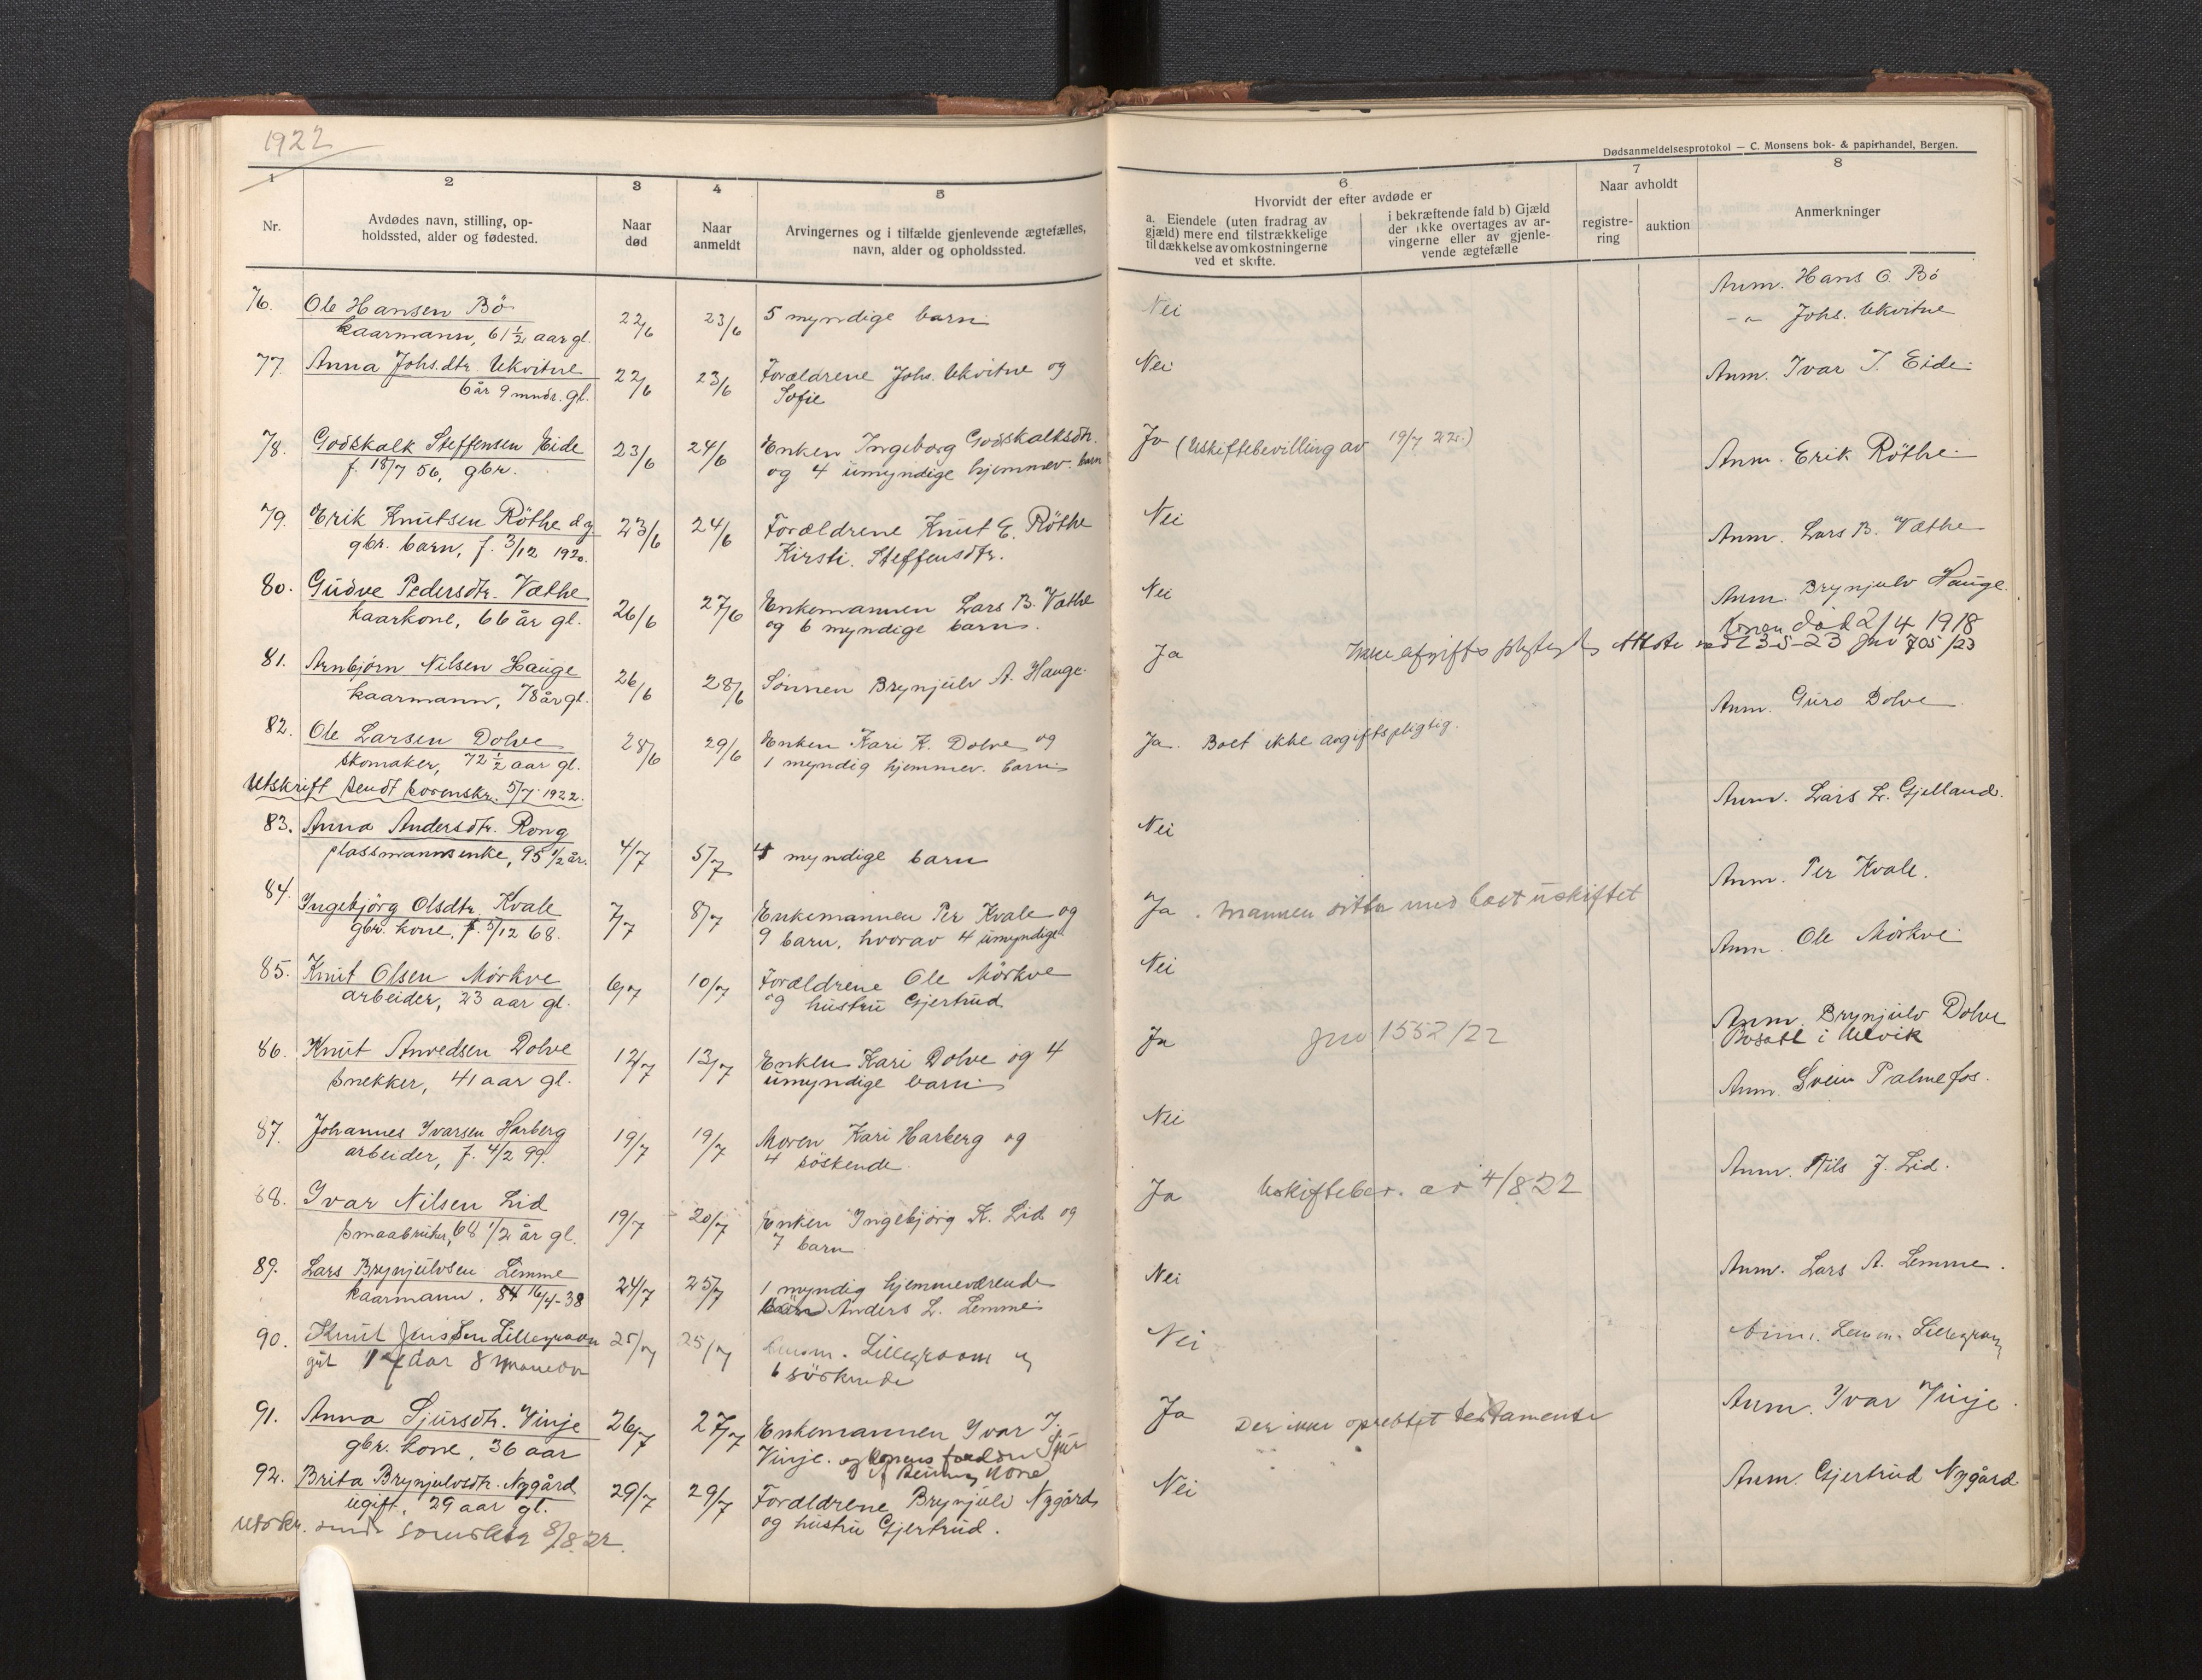 1922
Dødsanmeldelsesprotokol — C. Monsens bok- & papirhandel, Bergen.
1
2
3
4
5
6
7
8
Nr.
Avdødes navn, stilling, op-
holdssted, alder og fødested.
Naar
død
Naar
anmeldt
Arvingernes og i tilfælde gjenlevende ægtefælles,
navn, alder og opholdssted.
Hvorvidt der efter avdøde er
a. Eiendele (uten fradrag av
gjæld) mere end tilstrækkelige
til dækkelse av omkostningerne
ved et skifte.
i bekræftende fald b) Gjæld
der ikke overtages av ar-
vingerne eller av gjenle-
vende ægtefælle
Naar avholdt
registre-
ring
auktion
Anmerkninger
76. Ole Hansen Bö 22/6 23/6 5 myndige barn Nei Anm. Hans O. Bö
kaarmann, 61 1/2 aar gl.
77. Anna Johs.dtr. Ukvitne 22/6 23/6 Forældrene Johs. Ukvitne og Nei -"- Johs. Ukvitne
6 år 9 mndr. gl. Sofie
78. Godskalk Steffensen Eide 23/6 24/6 Enken Ingeborg Godskalksdtr. Ja (Uskiftebevilling av 19/7 22.) Anm. Ivar I. Eide
f. 18/7 56, gbr. og 4 umyndige hjemmev. barn
79. Erik Knutsen Röthe d.y. 23/6 24/6 Forældrene Knut E. Röthe Nei Anm. Erik Röthe
gbr. barn, f. 3/12 1920. Kirsti Steffensdtr.
80. Gudve Pedersdtr. Væthe 26/6 27/6 Enkemannen Lars B. Væthe Nei Anm. Lars B. Væthe
kaarkone, 66 år gl. og 6 myndige barn.
81. Arnbjörn Nilsen Hauge 26/6 28/6 Sönnen Brynjulv A. Hauge Ja Anm. Brynjulv Hauge
kaarmann, 78 år gl. Ikke afgiftspligtig Konen död 2/4 1918
23-5-23 jno 705/23
82. Ole Larsen Dolve 28/6 29/6 Enken Kari K. Dolve og Ja. Boet ikke avgiftspligtig. Anm. Guro Dolve
skomaker, 72 1/2 aar gl. 1 myndig hjemmev. barn
Utskrift sendt sorenskr. 5/7 1922.
83. Anna Andersdtr. Rong 4/7 5/7 4 myndige barn Nei Anm. Lars L. Gjelland.
plassmannsenke, 95 1/2 år.
84. Ingebjörg Olsdtr. Kvale 7/7 8/7 Enkemannen Per Kvale og Ja. Mannen sitter med boet uskiftet Anm. Per Kvale.
gbr. kone, f. 5/12 68. 9 barn, hvorav 4 umyndige
85. Knut Olsen Mörkve 6/7 10/7 Forældrene Ole Mörkve Nei Anm. Ole Mörkve
arbeider, 23 aar gl. og hustru Gjertrud
86. Knut Anvedsen Dolve 12/7 13/7 Enken Kari Dolve og 4 Ja jno 1552/22 Anm. Brynjulv Dolve
snekker, 41 aar gl. umyndige barn Bosatt i Ulvik
87. Johannes Ivarsen Harberg 19/7 19/7 Moren Kari Harberg og Nei Anm. Svein Palmefos.
arbeider, f. 4/2 99. 4 söskende
88. Ivar Nilsen Lid 19/7 20/7 Enken Ingebjörg K. Lid og Ja Uskiftebev. av 4/8 22 Anm. Nils J. Lid.
smaabruker, 68 1/2 år gl. 7 barn
89. Lars Brynjulvsen Lemme 24/7 25/7 1 myndig hjemmeværende Nei Anm. Lars A. Lemme.
kaarmann. 84 16/4-38 barn Anders L. Lemme
90. Knut Lillegraven 25/7 25/7 Lillegraven og Nei Lillegraven
gut 8 maaneder 6 söskende
91. Anna Sjursdtr. Vinje 26/7 27/7 Enkemannen Ivar I. Ja Der ikke oprettet testamente Anm. Ivar Vinje.
gbr. kone, 36 aar Vinje. og konens foreldre Sjur
kone
92. Brita Brynjulvsdtr. Nygård 29/7 29/7 Forældrene Brynjulv Nygård Nei Anm. Gjertrud Nygård
ugift, 29 aar gl. og hustru Gjertrud.
Utskr. sendt sorenskr 8/8 22.